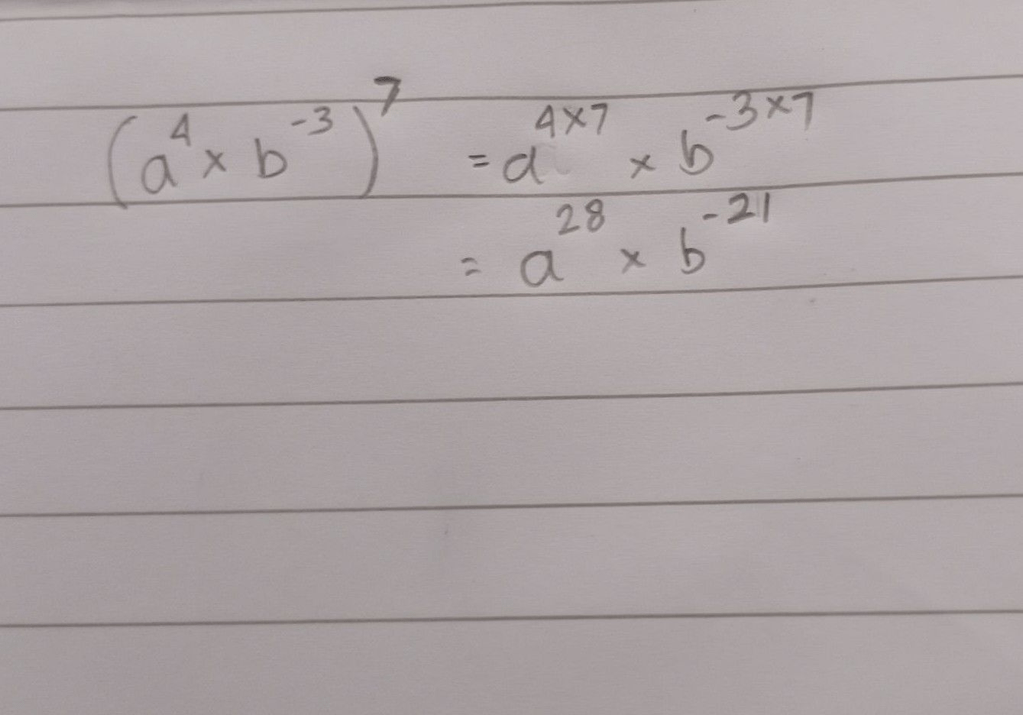 (a⁴ × b⁻³)⁷ = a⁴ˣ⁷ × b⁻³ˣ⁷
= a²⁸ × b⁻²¹